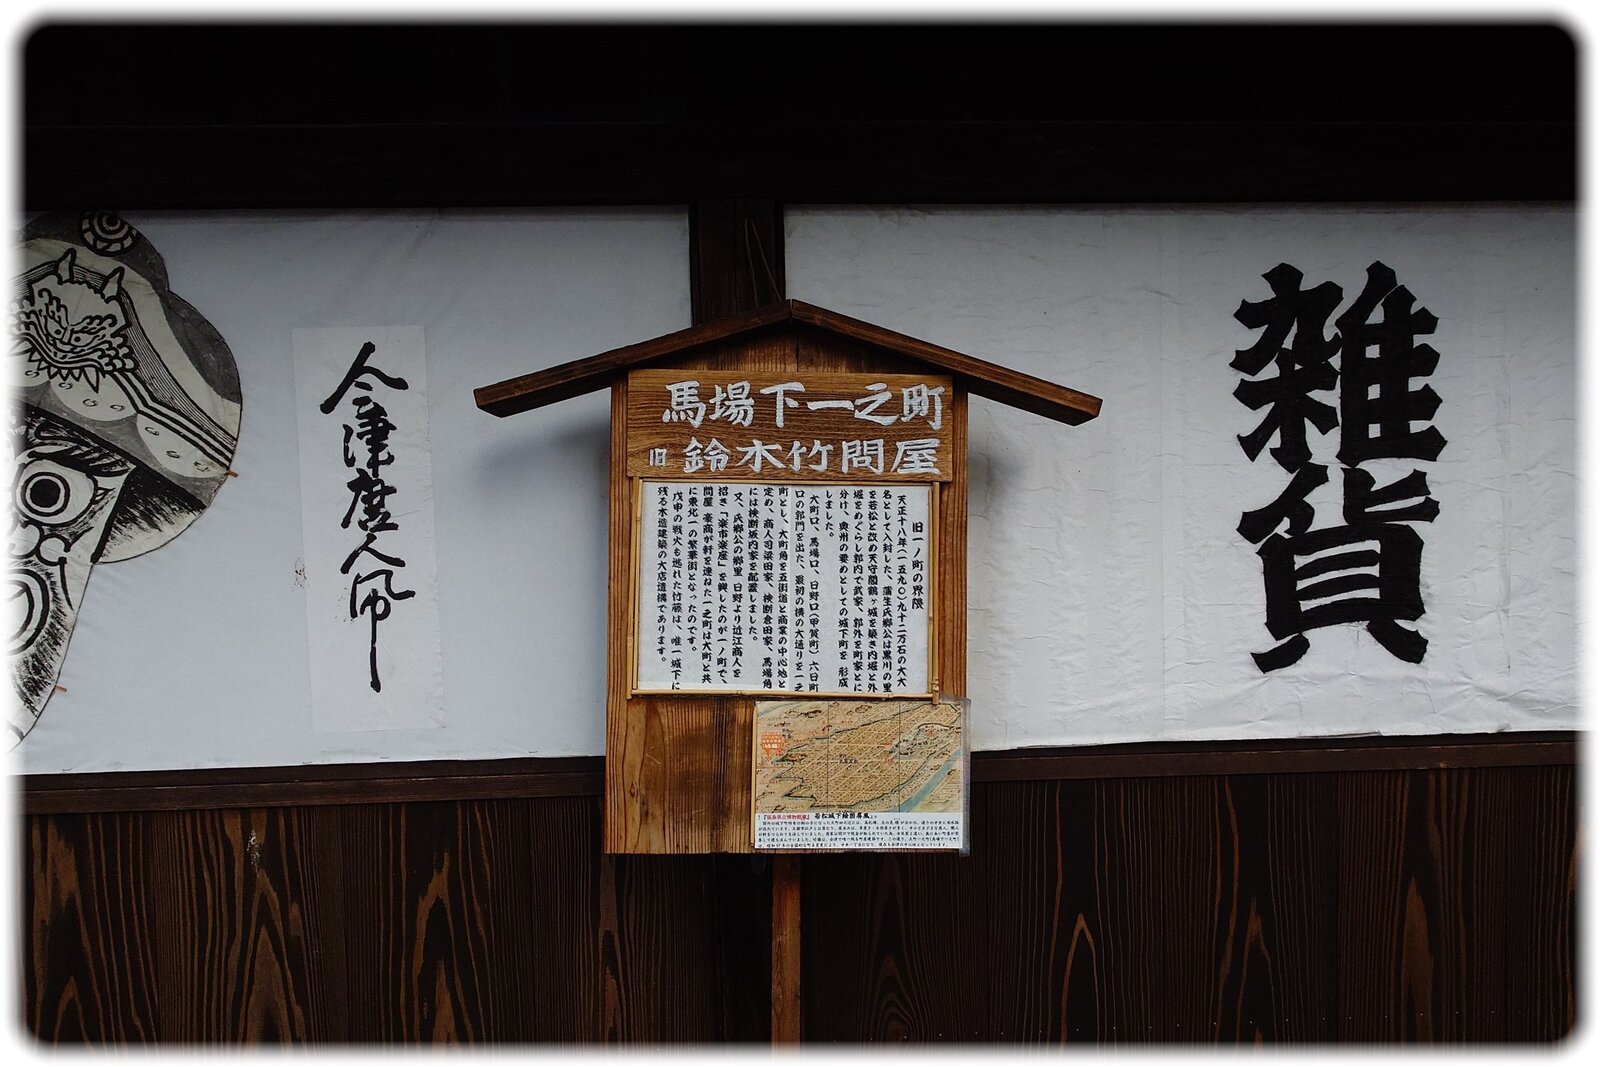 雑貨
馬場下一之町
旧 鈴木竹問屋
旧一ノ町の界隈
天正十八年(一五九〇)九十二万石の大大
名として入封した、蒲生氏郷公は黒川の里
を若松と改め天守閣鶴ヶ城を築き内堀と外
堀をめぐらし郭内で武家、郭外を町家とに
分け、奥州の要めとしての城下町を 形成
しました。
大町口、馬場口、日野口(甲賀町) 六日町
口の郭門を出た、最初の横の大通りを一之
町とし、大町角を五街道と商業の中心地と
定め、商人司簗田家、検断倉田家、馬場角
には検断坂内家を配置しました。
又、氏郷公の郷里 日野より近江商人を
招き「楽市楽座」を興したのが一ノ町で、
問屋 豪商が軒を連ねた一之町は大町と共
に東北一の繁華街となったのです。
戊申の戦火も逃れた竹藤は、唯一城下に
残る木造建築の大店造構であります。
会津唐人凧
『福島県立博物館蔵』 若松城下絵図屏風より